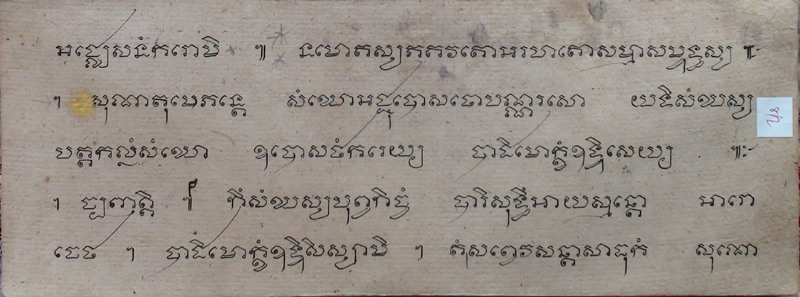 អជ្ឈេសនំករោមិ ៕ នមោតស្សភគវតោអរហតោសម្មាសម្ពុទ្ធស្ស ៕
។ សុណាតុមេភន្តេ សំឃោអជ្ជុបោសថោបណ្ណរសោ យទិសំឃស្ស
បត្តកល្លំសំឃោ ឧបោសថំករេយ្យ បាដិមោក្ខំឧទ្ទិសេយ្យ ៕
។ ៕ កឹសំឃស្សបុព្វកិច្ចំ បារិសុទ្ធឹអាយស្មន្តោ អារោ
ចេថ ។ បាដិមោក្ខំឧទ្ទិសិស្សាមិ ។ តំសព្វេវសន្តាសាធុកំ សុណោ